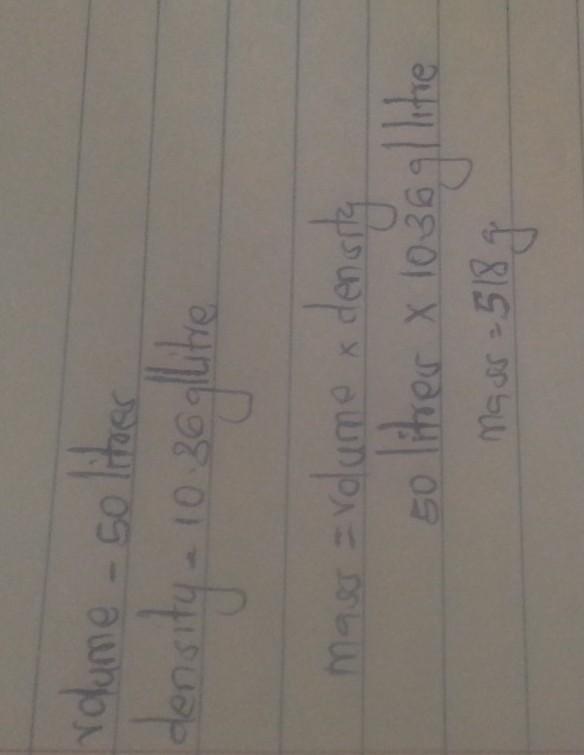 volume - 50 litres
density - 10.36 g/Litre
mass = volume x density
50 litres x 10.36 g/litre
mass = 518 g